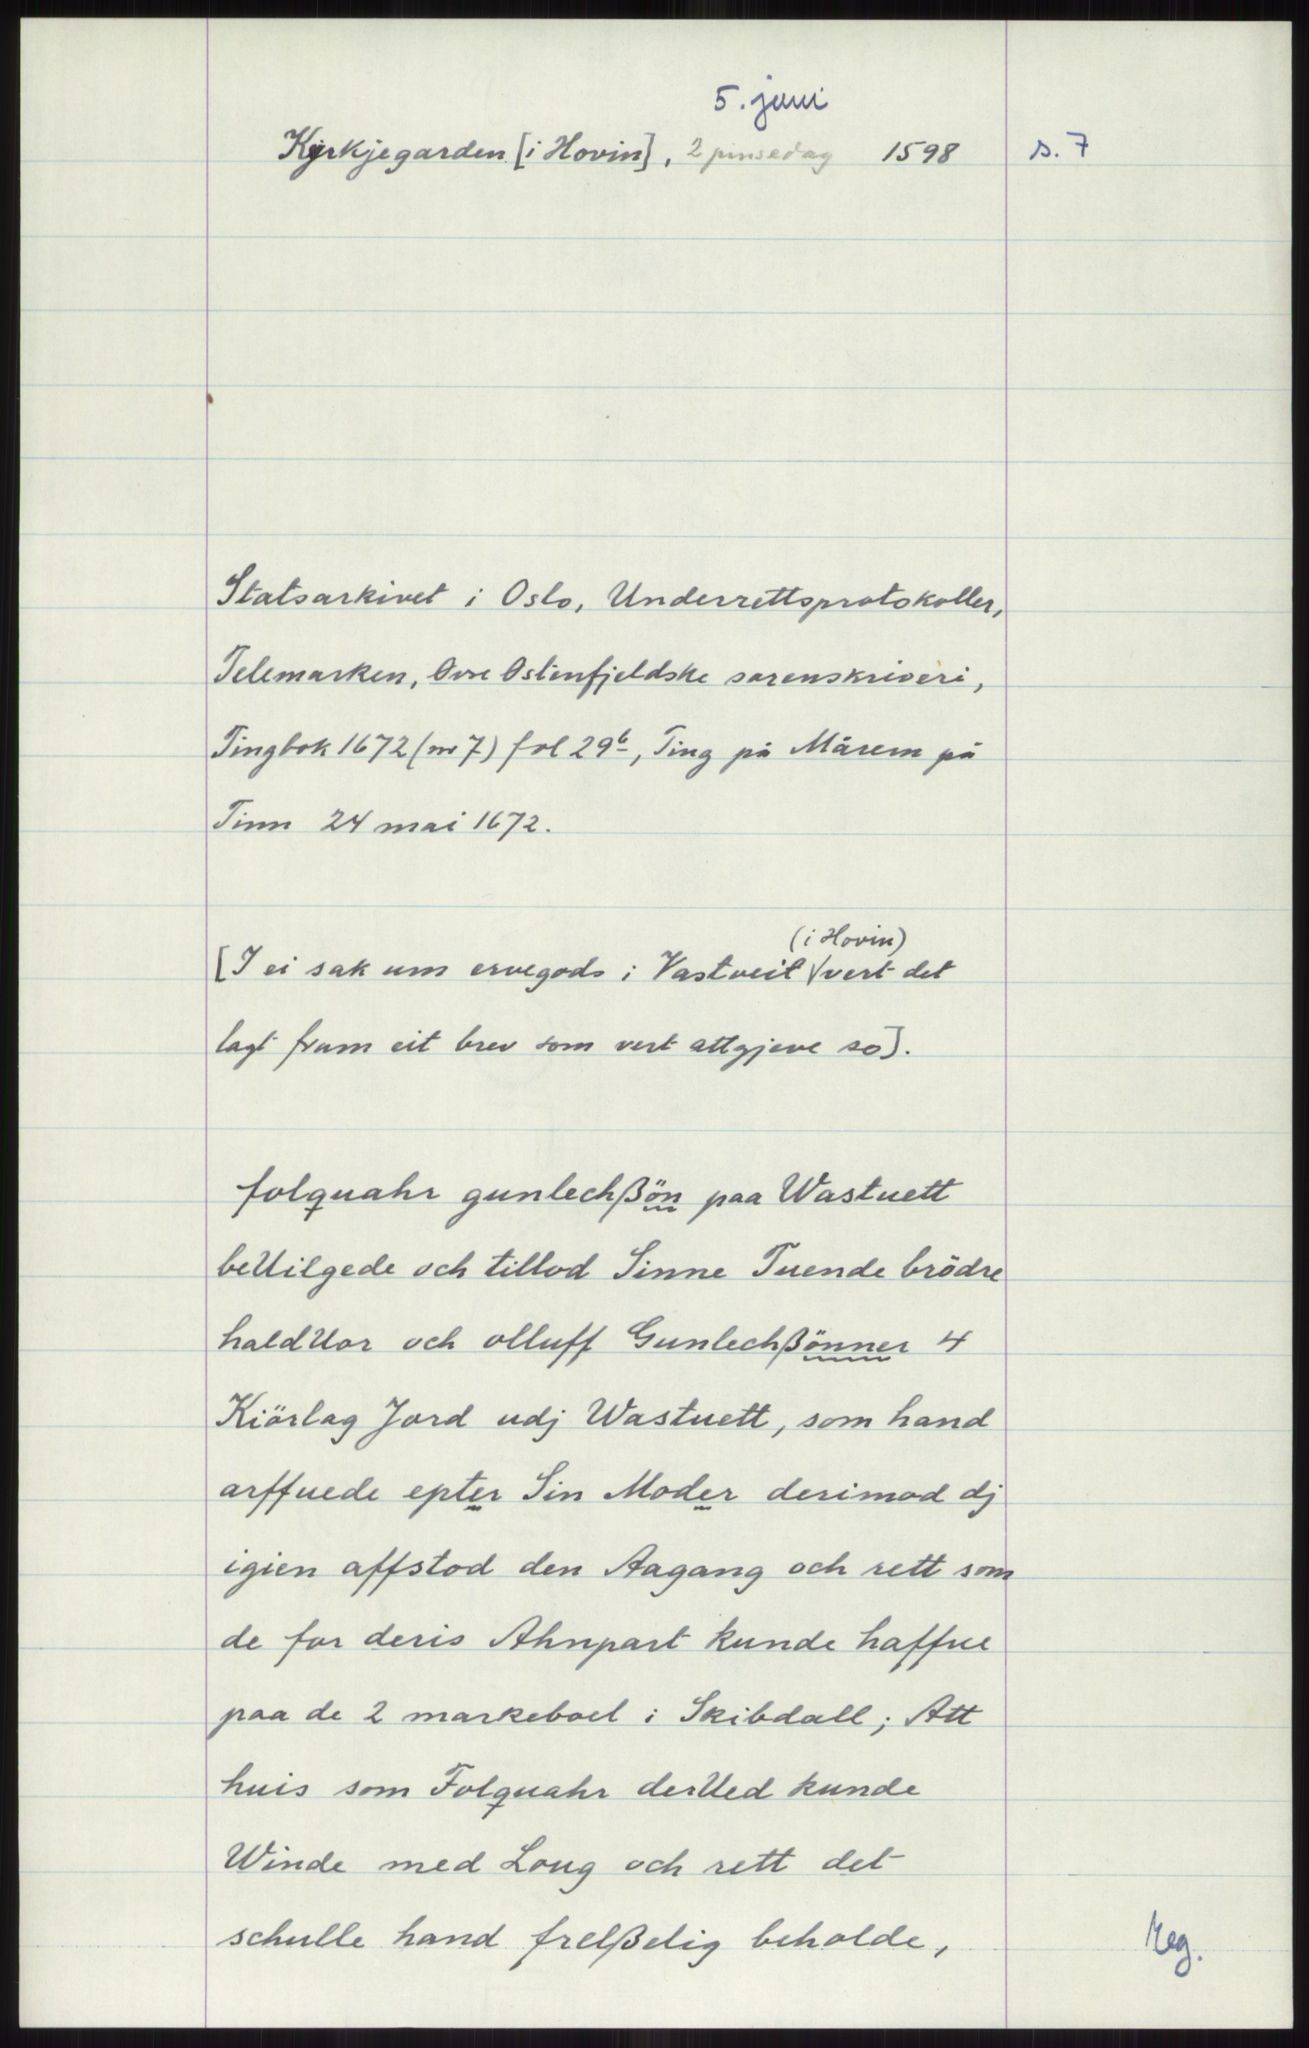 5. juni
Kyrkjegarden [i Hovin], 2 pinsedag 1598 s. 7
Statsarkivet i Oslo, Underrettsprotokoller,
Telemarken, Øvre Østenfjeldske sorenskriveri,
Tingbok 1672 (nr 7) fol 29b, Ting på Mårem på
Tinn 24 mai 1672.
(i Hovin)
[I ei sak um ervegods i Vastveit vert det
lagt fram eit brev som vert attgjeve so].
folquahr gunlechßön paa Wastuett
beUilgede och tillod Sinne Tuende brödre
haldUor och olluff Gunlechßönner 4
Kiörlag Jord udj Wastuett, som hand
arffuede epter Sin Moder derimod dj
igien affstod den Aagang och rett som
de for deris Ahnpart kunde haffue
paa de 2 markeboel i Skibdall; Att
huis som Folquahr derUed kunde
Winde med Loug och rett det
schulle hand frelßelig beholde,
Reg.